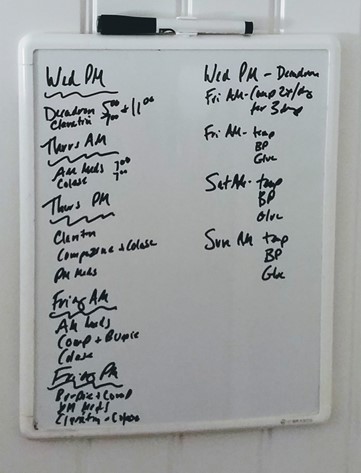 Wed PM
Decadron 5:00 + 11:00
Claratin 7:00
Thurs AM
AM Meds 7:00
Colase 7:00
Thurs PM
Claritin
Compazine + Colase
PM Meds
AM Meds
Comp +
Colase
+ Comp
PM Meds
Claratin - Colase
Wed PM - Decadron
Fri AM - Comp 2x/day
for 3 days
Fri AM - temp
BP
Gluc
Sat AM - temp
BP
Gluc
Sun AM temp
BP
Gluc